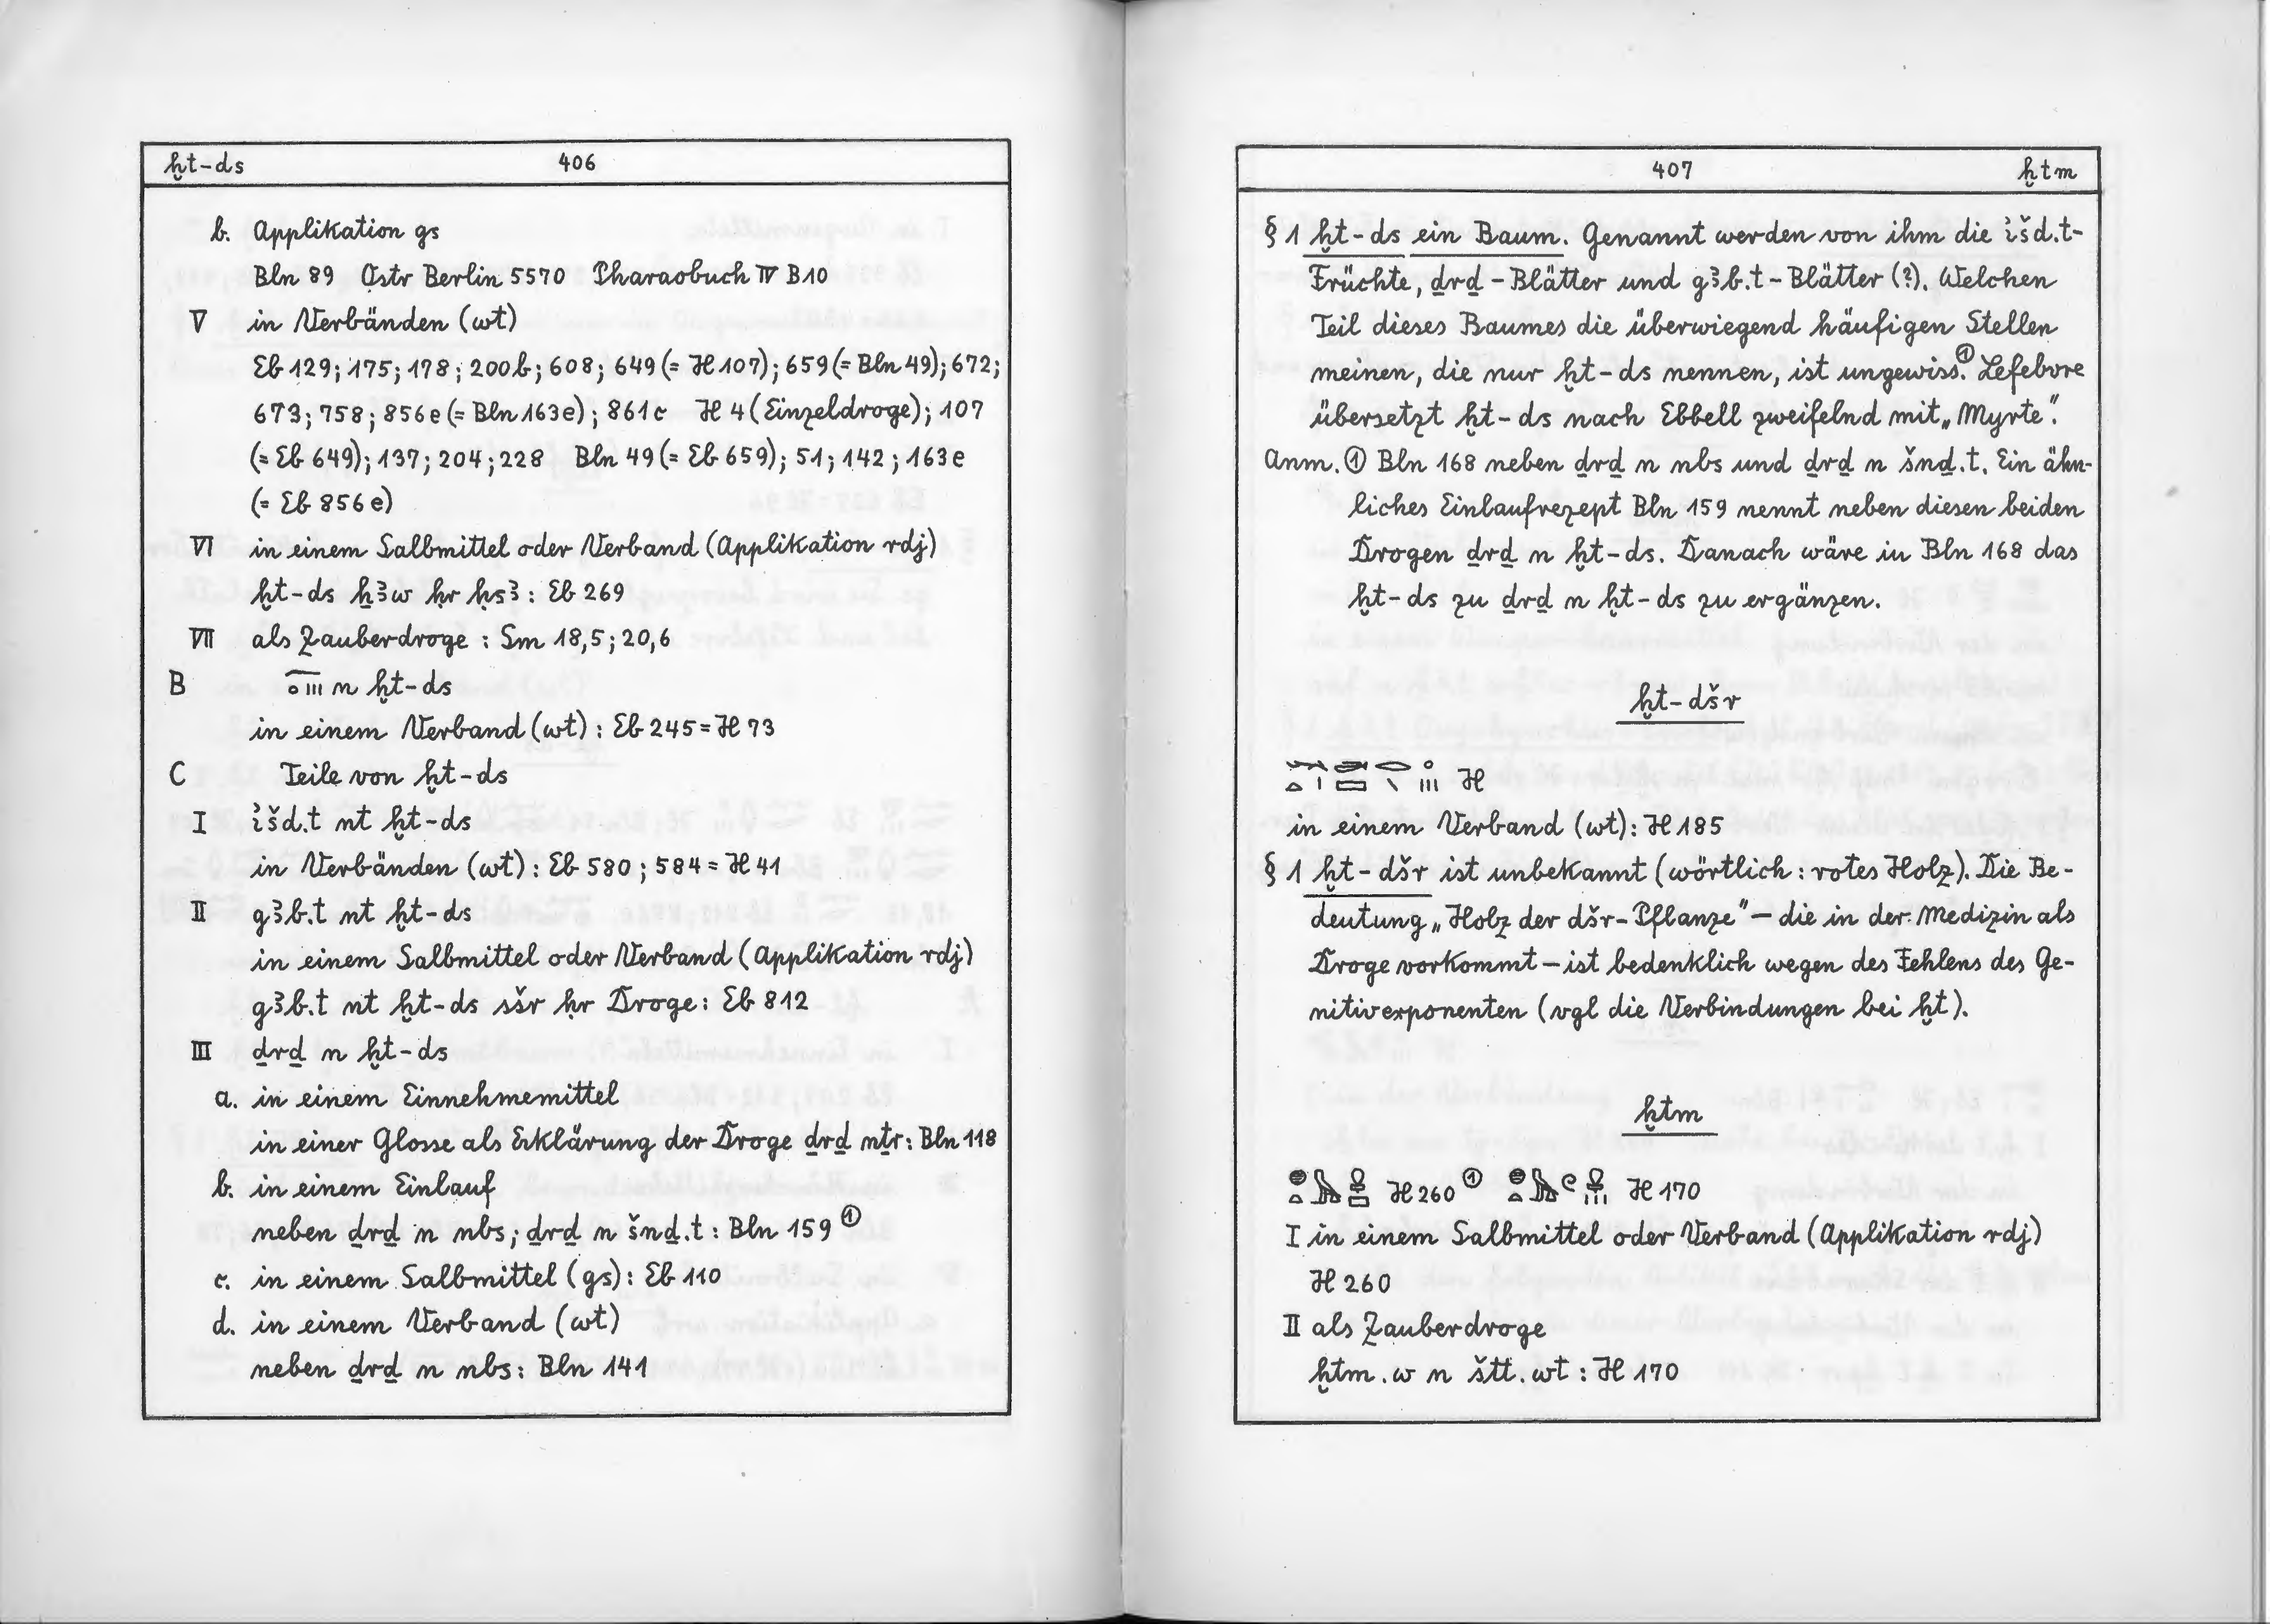 ḫt-ds 406
b. Applikation gs
Bln 89 Ostr Berlin 5570 Pharaobuch IV B10
V in Verbänden (wt)
Eb 129; 175; 178; 200b; 608; 649 (= H 107); 659 (= Bln 49); 672;
673; 758; 856e (= Bln 163e); 861c H 4 (Einzeldroge); 107
(= Eb 649); 137; 204; 228 Bln 49 (= Eb 659); 51; 142; 163e
(= Eb 856e)
VI in einem Salbmittel oder Verband (Applikation rdj)
ḫt-ds ẖꜣw ḥr ḥsꜣ: Eb 269
VII als Zauberdroge: Sm 18,5; 20,6
B n ḫt-ds
in einem Verband (wt): Eb 245 = H 73
C Teile von ḫt-ds
I ı͗šd.t nt ḫt-ds
in Verbänden (wt): Eb 580; 584 = H 41
II gꜣb.t nt ḫt-ds
in einem Salbmittel oder Verband (Applikation rdj)
gꜣb.t nt ḫt-ds sšr ḥr Droge: Eb 812
III ḏrḏ n ḫt-ds
a. in einem Einnehmemittel
in einer Glosse als Erklärung der Droge ḏrḏ nṯr: Bln 118
b. in einem Einlauf
neben ḏrḏ n nbs; ḏrḏ n šnḏ.t: Bln 159 ①
c. in einem Salbmittel (gs): Eb 110
d. in einem Verband (wt)
neben ḏrḏ n nbs: Bln 141
407 ḫtm
§ 1 ḫt-ds ein Baum. Genannt werden von ihm die ı͗šd.t-
Früchte, ḏrḏ-Blätter und gꜣb.t-Blätter (?). Welchen
Teil dieses Baumes die überwiegend häufigen Stellen
meinen, die nur ḫt-ds nennen, ist ungewiss.① Lefebvre
übersetzt ḫt-ds nach Ebbell zweifelnd mit „Myrte".
Anm. ① Bln 168 neben ḏrḏ n nbs und ḏrḏ n šnḏ.t. Ein ähn-
liches Einlaufrezept Bln 159 nennt neben diesen beiden
Drogen ḏrḏ n ḫt-ds. Danach wäre in Bln 168 das
ḫt-ds zu ḏrḏ n ḫt-ds zu ergänzen.
ḫt-dšr
H
in einem Verband (wt): H 185
§ 1 ḫt-dšr ist unbekannt (wörtlich: rotes Holz). Die Be-
deutung „Holz der dšr-Pflanze" – die in der Medizin als
Droge vorkommt – ist bedenklich wegen des Fehlens des Ge-
nitivexponenten (vgl die Verbindungen bei ḫt).
ḫtm
H 260 ① H 170
I in einem Salbmittel oder Verband (Applikation rdj)
H 260
II als Zauberdroge
ḫtm.w n štt.wt: H 170